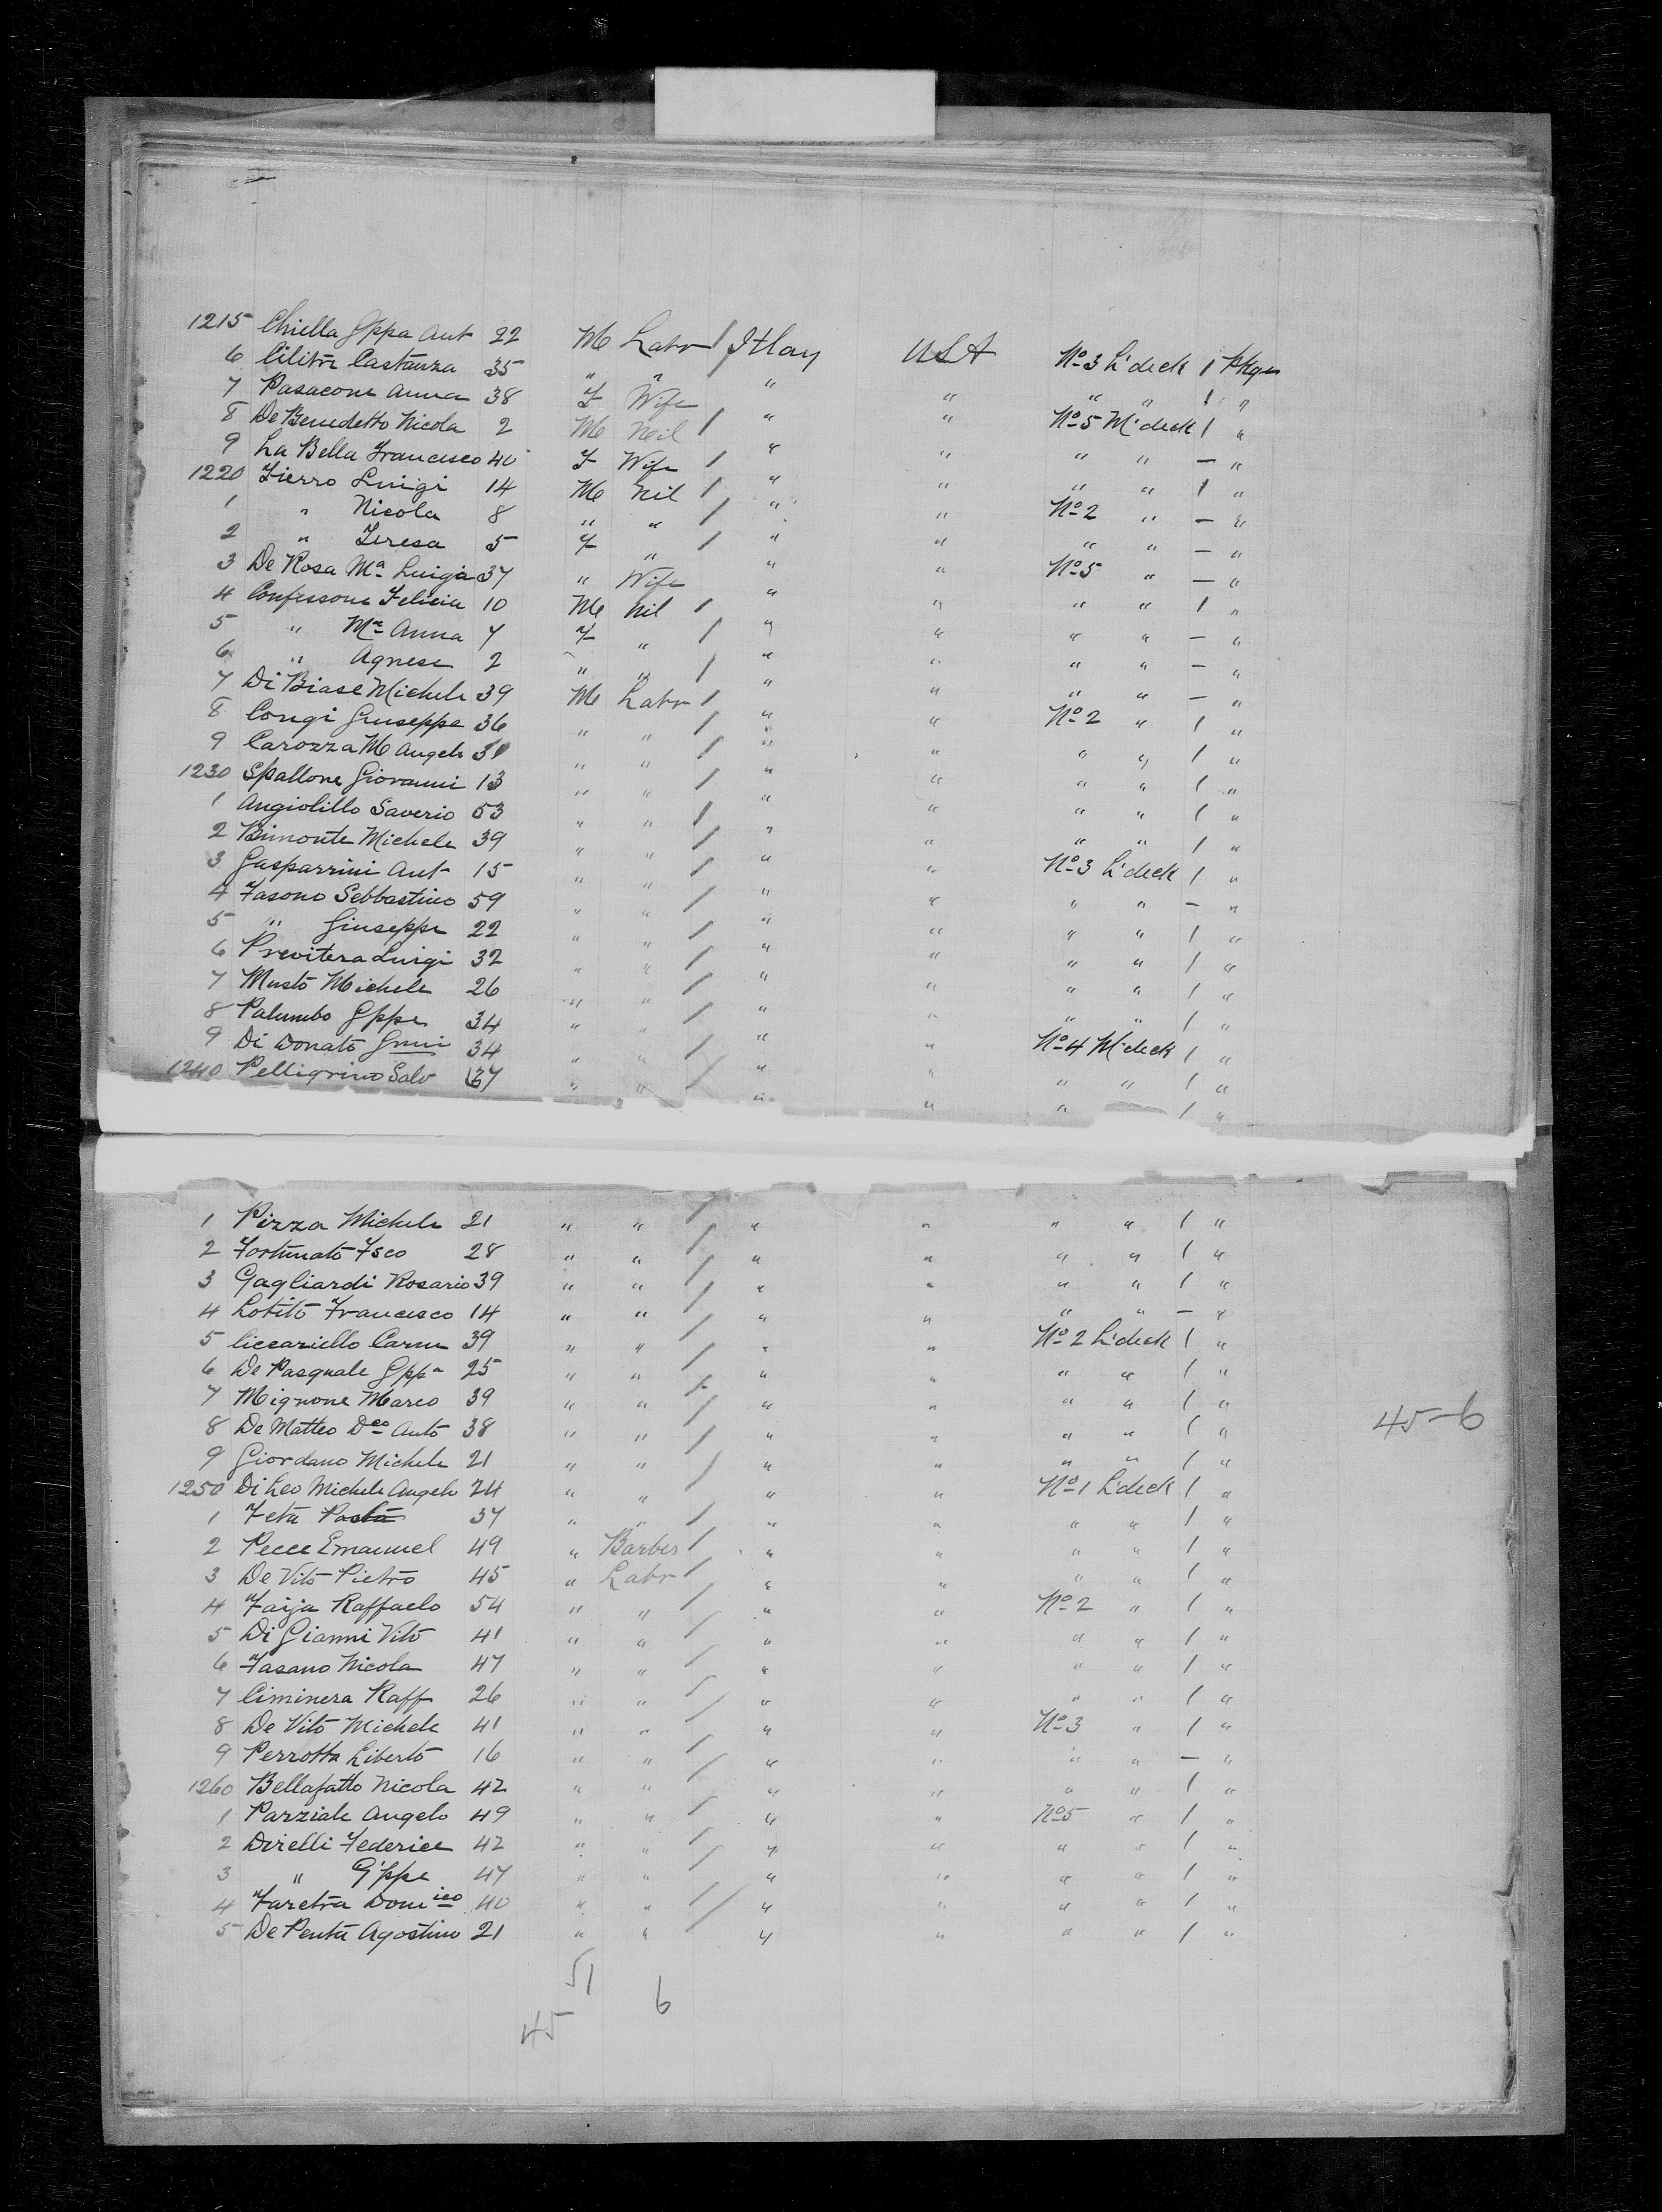 1215 Chiella Gppa Ant 22 M Labr / Itlay USA No 3 L'deck 1 Pkge
6 Cilitri Castanza 35 " " / " " " " 1 "
7 Pasacone Anna 38 F Wife " " No 5 M'deck 1 "
8 De Benedetto Nicola 2 M Neil / " " " " — "
9 La Bella Francesco 40 F Wife / " " " " 1 "
1220 Fierro Luigi 14 M Nil / " " No 2 " — "
1 " Nicola 8 " " / " " " " — "
2 " Teresa 5 F " / " " No 5 " — "
3 De Rosa Ma Luigia 37 " Wife " " " " 1 "
4 Confessone Felicia 10 M Nil / " " " " — "
5 " Ma Anna 7 F " / " " " " — "
6 " Agnese 2 " " / " " " " — "
7 Di Biase Michele 39 M Labr / " " No 2 " 1 "
8 Congi Giuseppe 36 " " / " " " " 1 "
9 Carozza M Angelo 30 " " / " " " " 1 "
1230 Spallone Giovanni 13 " " / " " " " 1 "
1 Angiolillo Saverio 53 " " / " " " " 1 "
2 Bimonte Michele 39 " " / " " No 3 L'deck 1 "
3 Gasparrini Ant 15 " " / " " " " — "
4 Fasono Sebbastino 59 " " / " " " " 1 "
5 " Giuseppe 22 " " / " " " " 1 "
6 Previtera Luigi 32 " " / " " " " 1 "
7 Musto Michele 26 " " / " " " " 1 "
8 Palumbo Gppe 34 " " / " " No 4 M'deck 1 "
9 Di Donato Gnni 34 " " / " " " " 1 "
1240 Pelligrino Salv 37 " " / " " " 1 "
1 Pizza Michele 21 " " / " " " " 1 "
2 Fortunato Fsco 28 " " / " " " " 1 "
3 Gagliardi Rosario 39 " " / " " " " 1 "
4 Lotito Francesco 14 " " / " " " " — "
5 Ciccariello Carm 39 " " / " " No 2 L'deck 1 "
6 De Pasquale Gppa 25 " " / " " " " 1 "
7 Mignone Marco 39 " " / " " " " 1 "
8 De Matteo Dco Anto 38 " " / " " " " 1 " 45-6
9 Giordano Michele 21 " " / " " " " 1 "
1250 Di Leo Michele Angelo 24 " " / " " No 1 L'deck 1 "
1 Feta 37 " " / " " " " 1 "
2 Pecce Emanuel 49 " Barber / " " " " 1 "
3 De Vito Pietro 45 " Labr / " " " " 1 "
4 Faija Raffaelo 54 " " / " " No 2 " 1 "
5 Di Gianni Vito 41 " " / " " " " 1 "
6 Fasano Nicola 47 " " / " " " " 1 "
7 Ciminera Raff 26 " " / " " " " 1 "
8 De Vito Michele 41 " " / " " No 3 " 1 "
9 Perrotta Liberto 16 " " / " " " " — "
1260 Bellafatto Nicola 42 " " / " " " " 1 "
1 Parziale Angelo 49 " " / " " No 5 " 1 "
2 Direlli Federice 42 " " / " " " " 1 "
3 " G'ppe 47 " " / " " " " 1 "
4 Faretra Domico 40 " " / " " " " 1 "
5 De Penta Agostino 21 " " / " " " " 1 "
51
6
45